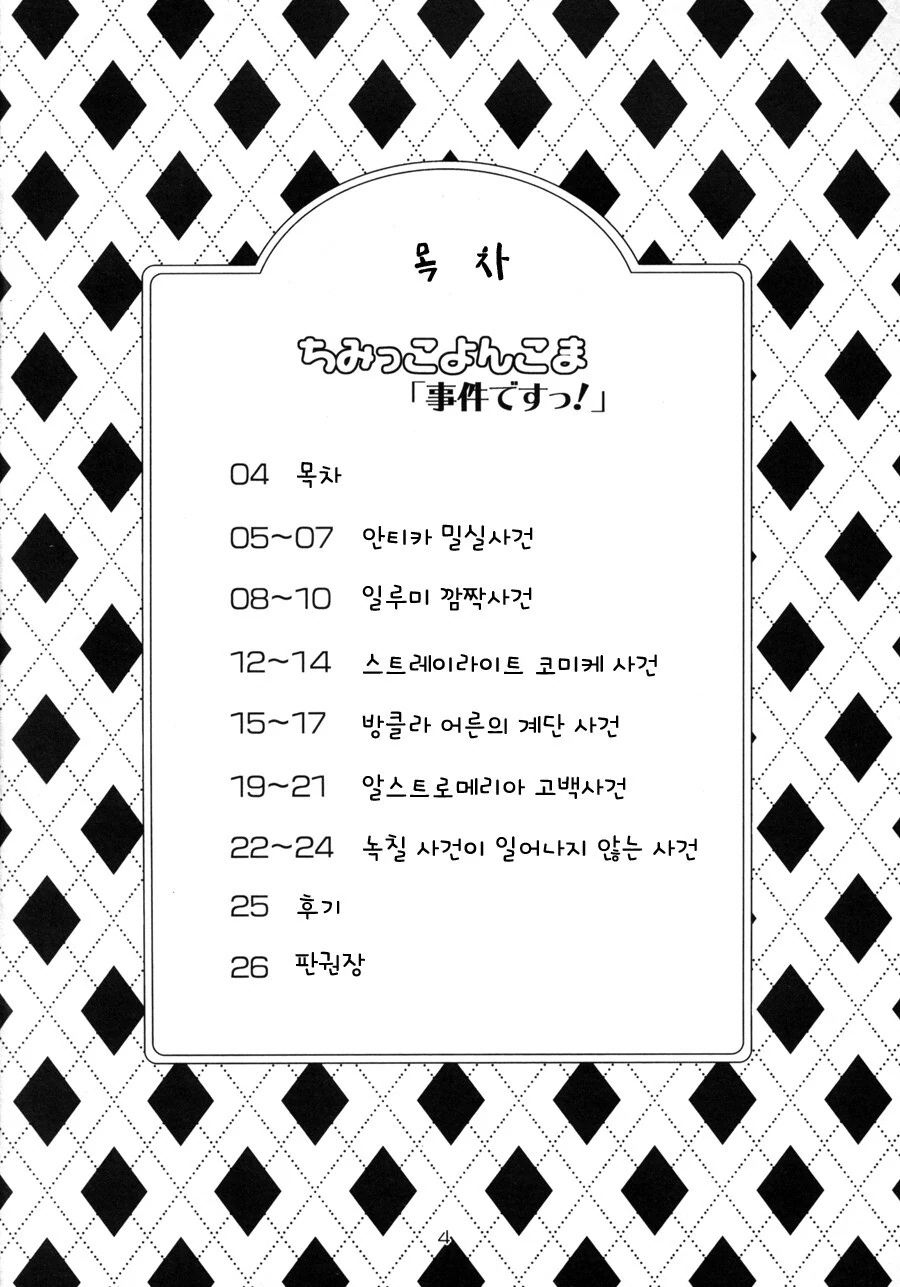 목 차
ちみっこよんこま
「事件ですっ!」
04 목차
05~07 안티카 밀실사건
08~10 일루미 깜짝사건
12~14 스트레이라이트 코미케 사건
15~17 방클라 어른의 계단 사건
19~21 알스트로메리아 고백사건
22~24 녹칠 사건이 일어나지 않는 사건
25 후기
26 판권장
4